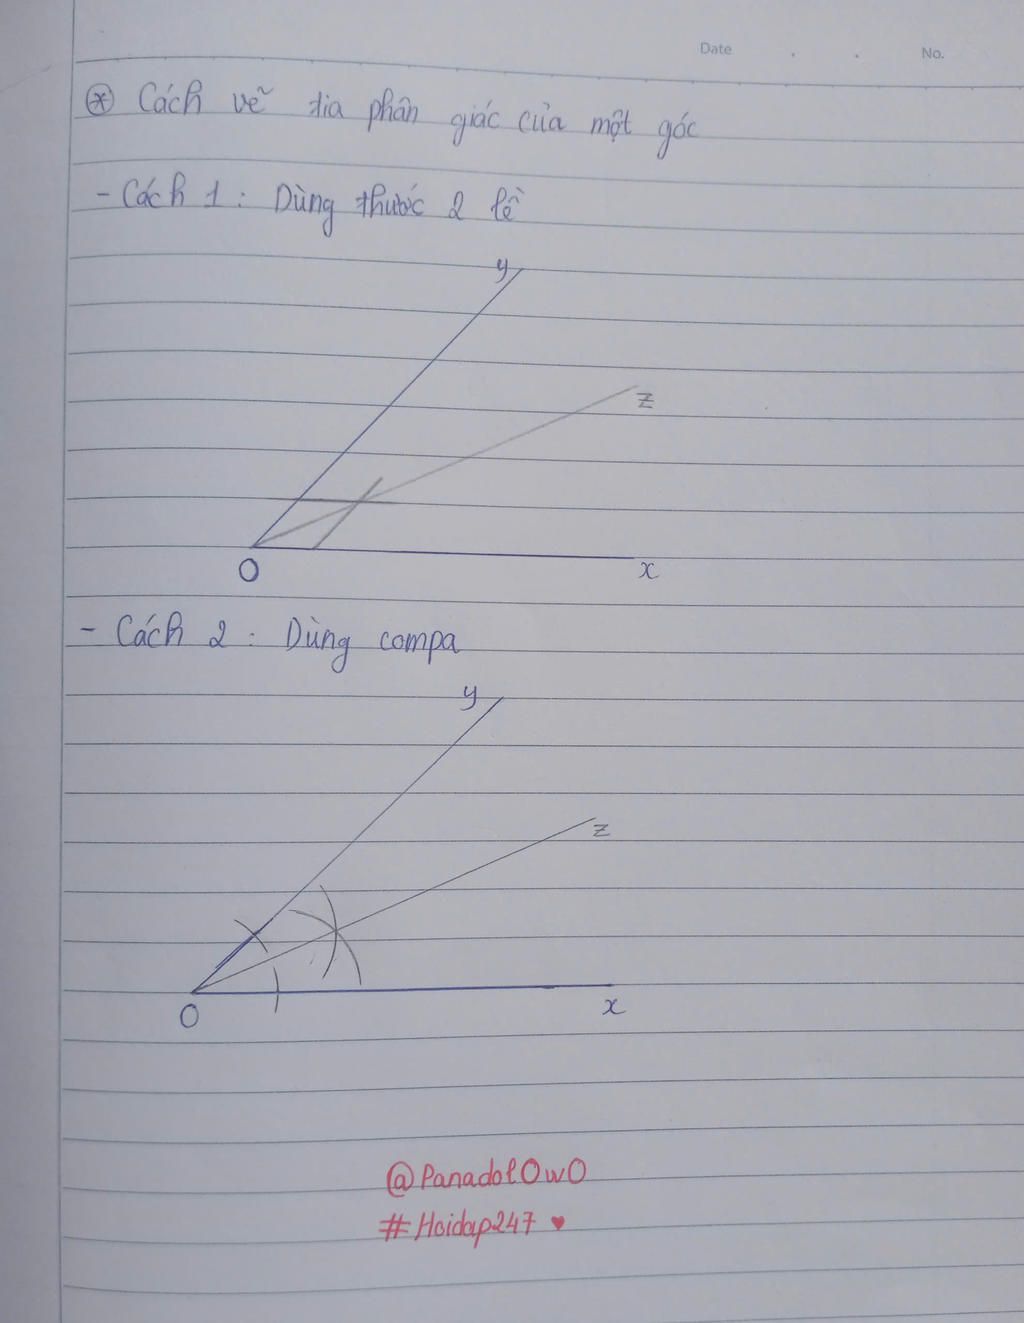 Date . . No.
⊛ Cách vẽ tia phân giác của một góc
- Cách 1 : Dùng thước 2 lề
y
z
O x
- Cách 2 : Dùng compa
y
z
O x
@PanadolOwO
#Hoidap247 ♥